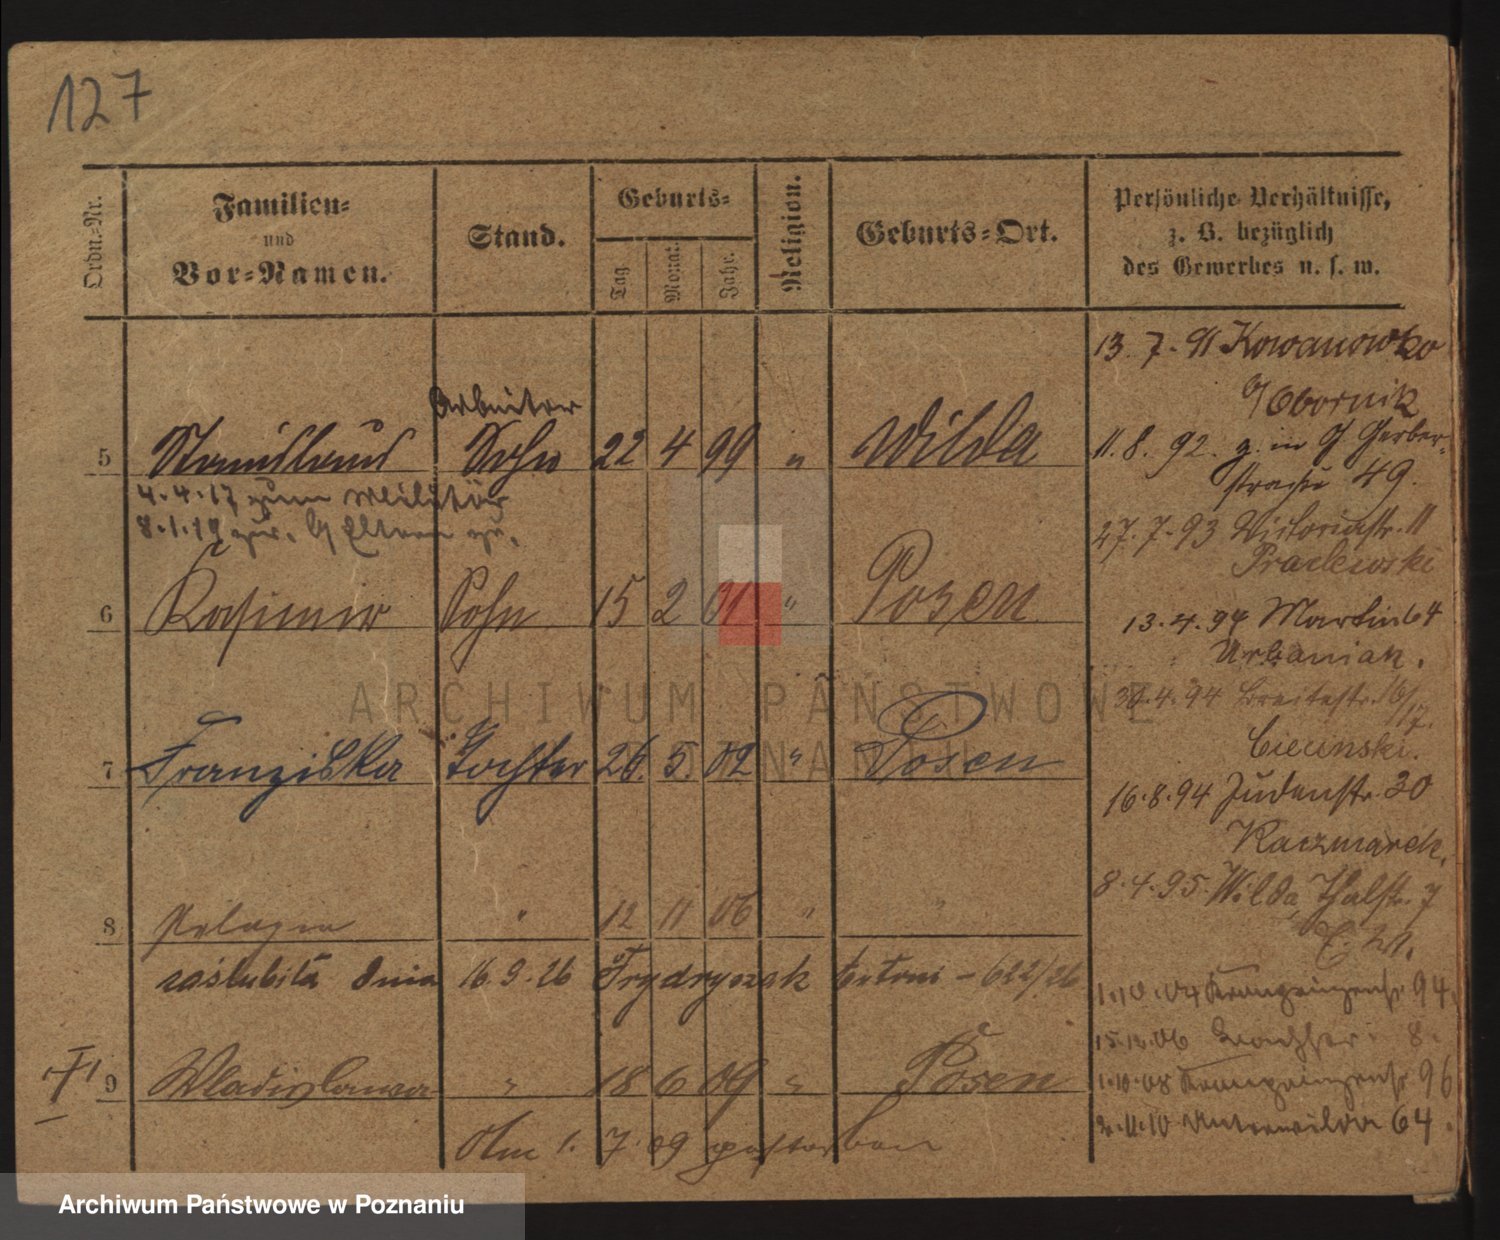 127
Ordn.-Nr.
Familien-
und
Vor-Namen.
Stand.
Geburts-
Tag
Monat
Jahr.
Religion.
Geburts-Ort.
Persönliche Verhältnisse,
z. B. bezüglich
des Gewerbes u. s. w.
Arbeiter
5 Stanislaus Sohn 22 4 99 " Wilda
4.4.17 zum Militär
8.1.19 zur. Eltern
6 Kasimir Sohn 15 2 01 " Posen
7 Franziska Tochter 26. 5. 02 " Posen
8 Pelagia " 12 11 06 " "
zaślubiła dnia 16.9.26 Frydryszak Antoni - 622/26
9 Wladislawa " 18 6 09 " Posen
Am 1. 7. 09 gestorben
13. 7. 91 Kowanowko
Obornik
11. 8. 92. in Gerber-
strasse 49.
27. 7. 93 Victoriastr. 11
13. 4. 94 Martin 64
Urbaniak.
30. 4. 94 Breitestr. 16/17.
16. 8. 94 Judenstr. 30
Kaczmarek.
8. 4. 95. Wilda, Thalstr. 7
1.10.04 Kronprinzenstr 94.
15.10.06 8.
1.10.08 Kronprinzenstr 96
2.11.10 Unterwilda 64.
ARCHIWUM PAŃSTWOWE
W POZNANIU
Archiwum Państwowe w Poznaniu